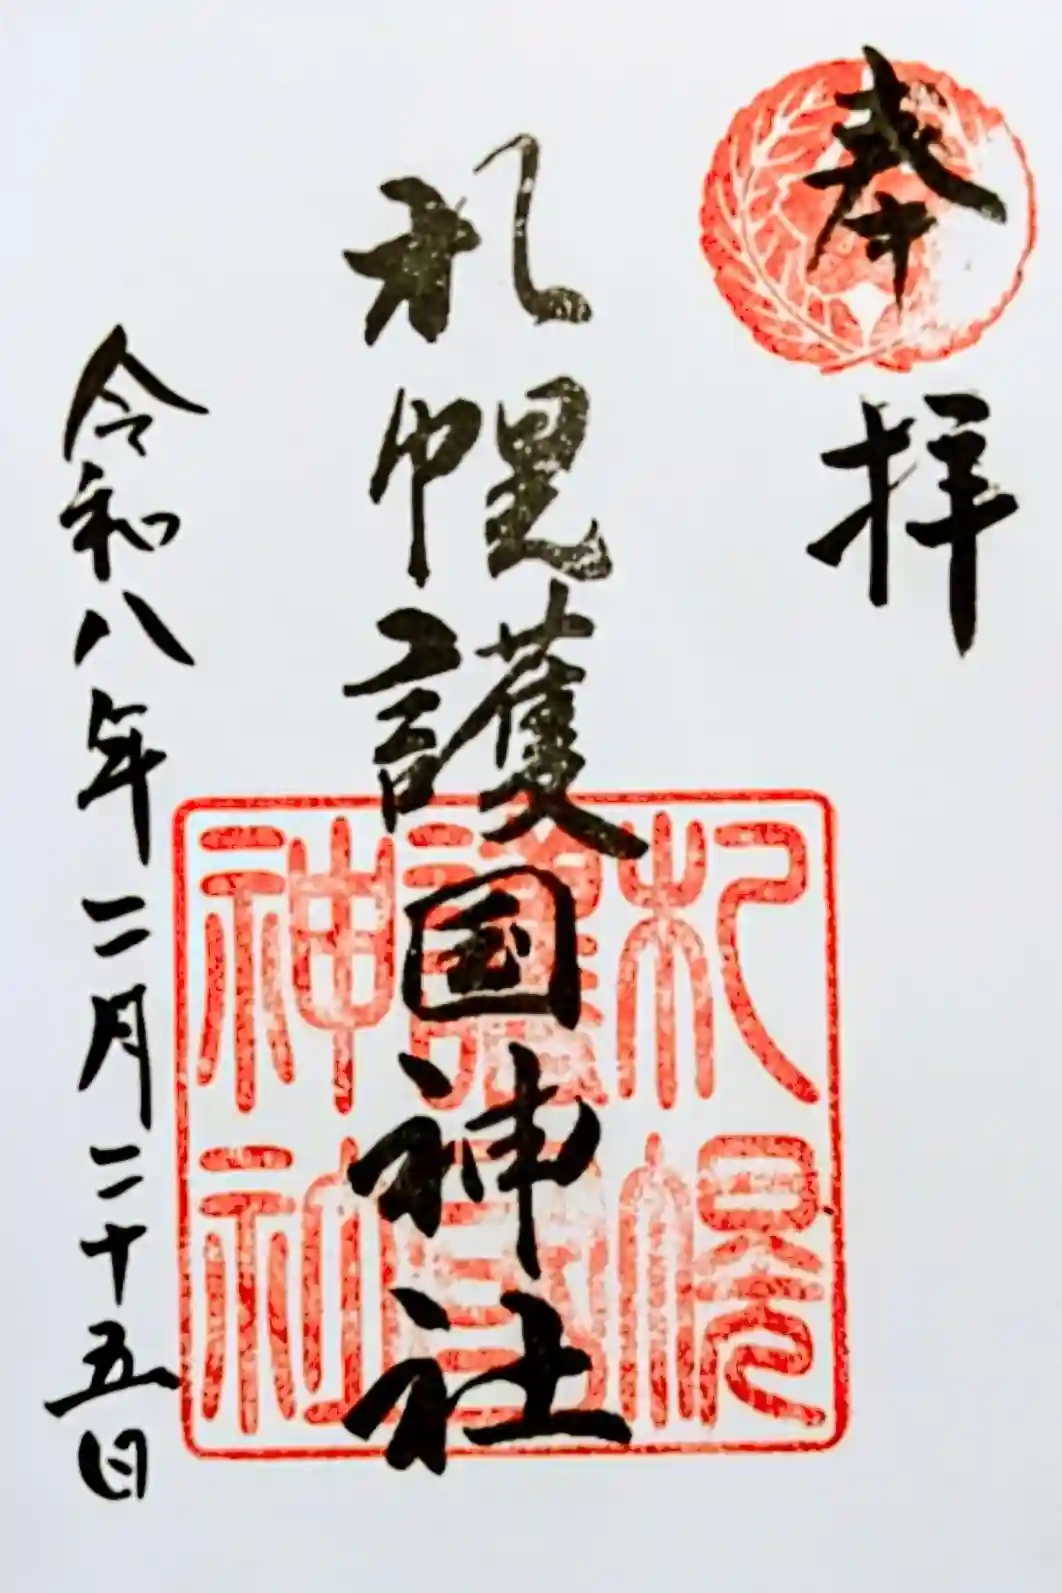 奉拝
札幌護国神社
札幌
護国
神社
令和八年二月二十五日